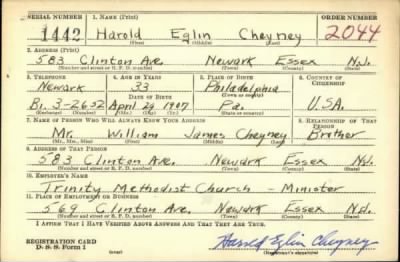 SERIAL NUMBER 1. NAME (Print) ORDER NUMBER
1442 Harold Eglin Cheyney 2044
(First) (Middle) (Last)
2. ADDRESS (Print)
583 Clinton Ave. Newark Essex N.J.
(Number and street or R. F. D. number) (Town) (County) (State)
3. TELEPHONE 4. AGE IN YEARS 5. PLACE OF BIRTH 6. COUNTRY OF CITIZENSHIP
Newark 33 Philadelphia
DATE OF BIRTH (Town or county)
Bi. 3-2652 April 29 1907 Pa. U.S.A.
(Exchange) (Number) (Mo.) (Day) (Yr.) (State or country)
7. NAME OF PERSON WHO WILL ALWAYS KNOW YOUR ADDRESS 8. RELATIONSHIP OF THAT PERSON
Mr. William James Cheyney Brother
(Mr., Mrs., Miss) (First) (Middle) (Last)
9. ADDRESS OF THAT PERSON
583 Clinton Ave. Newark Essex N.J.
(Number and street or R. F. D. number) (Town) (County) (State)
10. EMPLOYER'S NAME
Trinity Methodist Church - Minister
11. PLACE OF EMPLOYMENT OR BUSINESS
569 Clinton Ave. Newark Essex N.J.
(Number and street or R. F. D. number) (Town) (County) (State)
I AFFIRM THAT I HAVE VERIFIED ABOVE ANSWERS AND THAT THEY ARE TRUE.
REGISTRATION CARD
D. S. S. Form 1 (over) Harold Eglin Cheyney
(Registrant's signature)